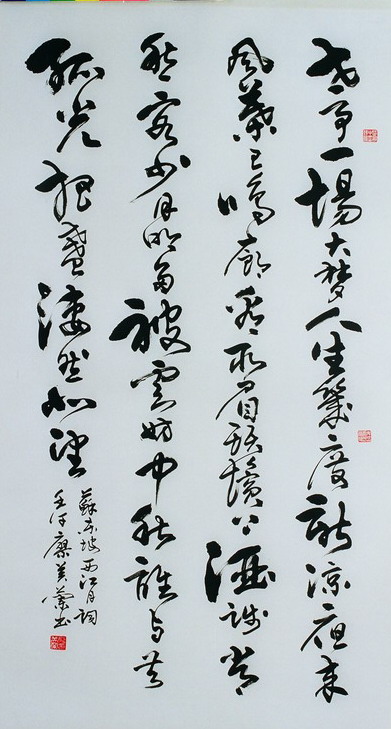 世事一場大夢人生幾度新涼夜來
風葉已鳴廊看取眉頭鬢上酒賤常
愁客少月明多被雲妨中秋誰與共
孤光把盞淒然北望
蘇東坡西江月詞
壬午廖美蘭書